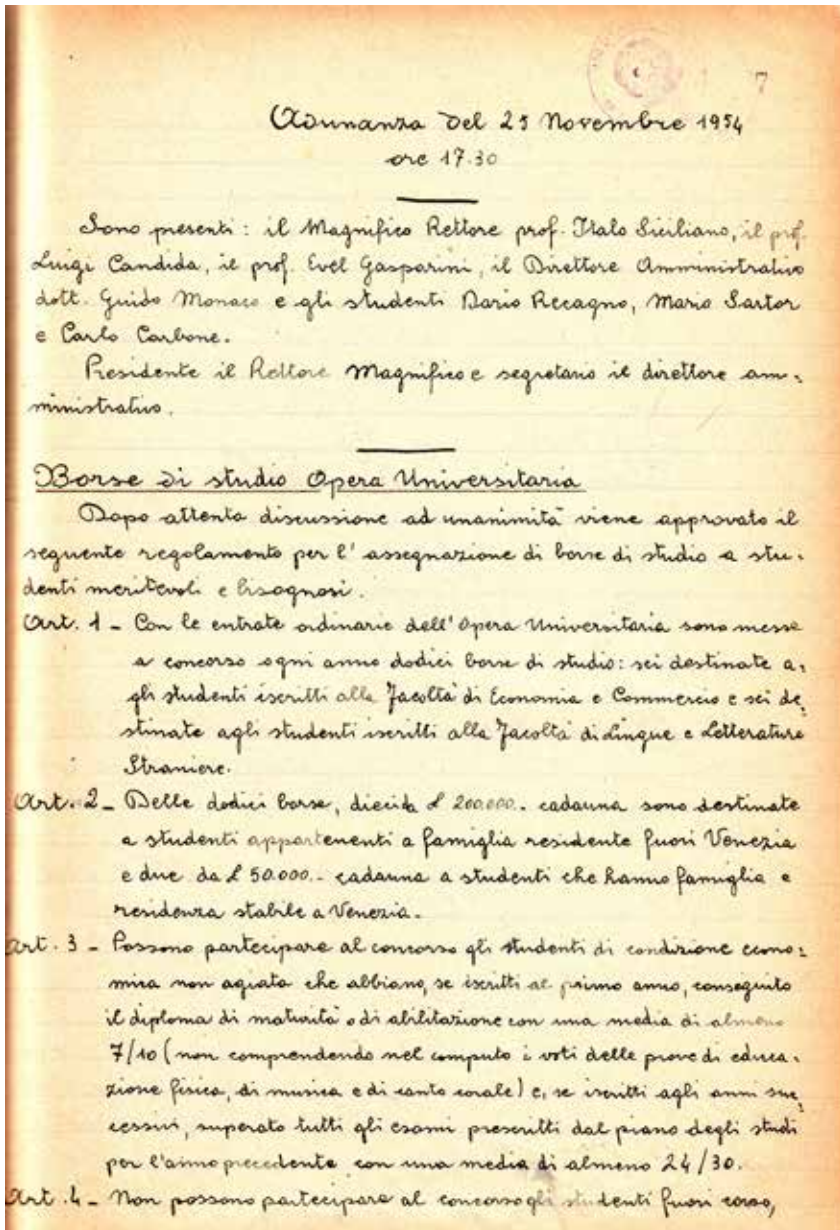 7
Adunanza del 25 Novembre 1954
ore 17.30
Sono presenti: il Magnifico Rettore prof. Italo Siciliano, il prof.
Luigi Candida, il prof. Evel Gasparini, il Direttore Amministrativo
dott. Guido Monaco e gli studenti Dario Recagno, Mario Sartor
e Carlo Carbone.
Presidente il Rettore Magnifico e segretario il direttore am=
ministrativo.
Borse di studio Opera Universitaria
Dopo attenta discussione ad unanimità viene approvato il
seguente regolamento per l'assegnazione di borse di studio a stu=
denti meritevoli e bisognosi.
Art. 1 - Con le entrate ordinarie dell'Opera Universitaria sono messe
a concorso ogni anno dodici borse di studio: sei destinate a=
gli studenti iscritti alla Facoltà di Economia e Commercio e sei de=
stinate agli studenti iscritti alla Facoltà di Lingue e Letterature
Straniere.
Art. 2 - Delle dodici borse, dieci da £ 200.000.- cadauna sono destinate
a studenti appartenenti a famiglia residente fuori Venezia
e due da £ 50.000.- cadauna a studenti che hanno famiglia e
residenza stabile a Venezia.
Art. 3 - Possono partecipare al concorso gli studenti di condizione econo=
mica non agiata che abbiano, se iscritti al primo anno, conseguito
il diploma di maturità o di abilitazione con una media di almeno
7/10 (non comprendendo nel computo i voti delle prove di educa=
zione fisica, di musica e di canto corale) e, se iscritti agli anni suc=
cessivi, superato tutti gli esami prescritti dal piano degli studi
per l'anno precedente con una media di almeno 24/30.
Art. 4 - Non possono partecipare al concorso gli studenti fuori corso,